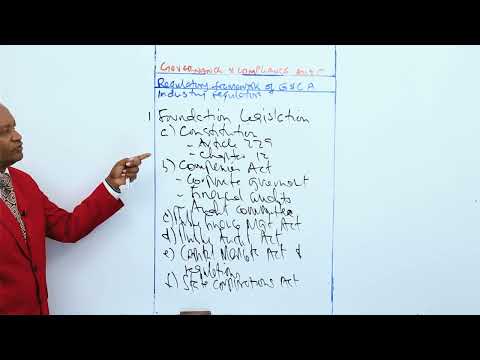 GOVERNANCE & COMPLIANCE AUDIT
Regulatory framework of G & C A
Industry regulation
1 Foundation Legislation
a) Constitution
- Article 229
- Chapter 12
b) Companies Act
- Corporate
- Financial audits
- Audit Committee
c) Finance Mgt Act
d) Public Audit Act
e) Capital Markets Act &
regulation
f) State Corporations Act